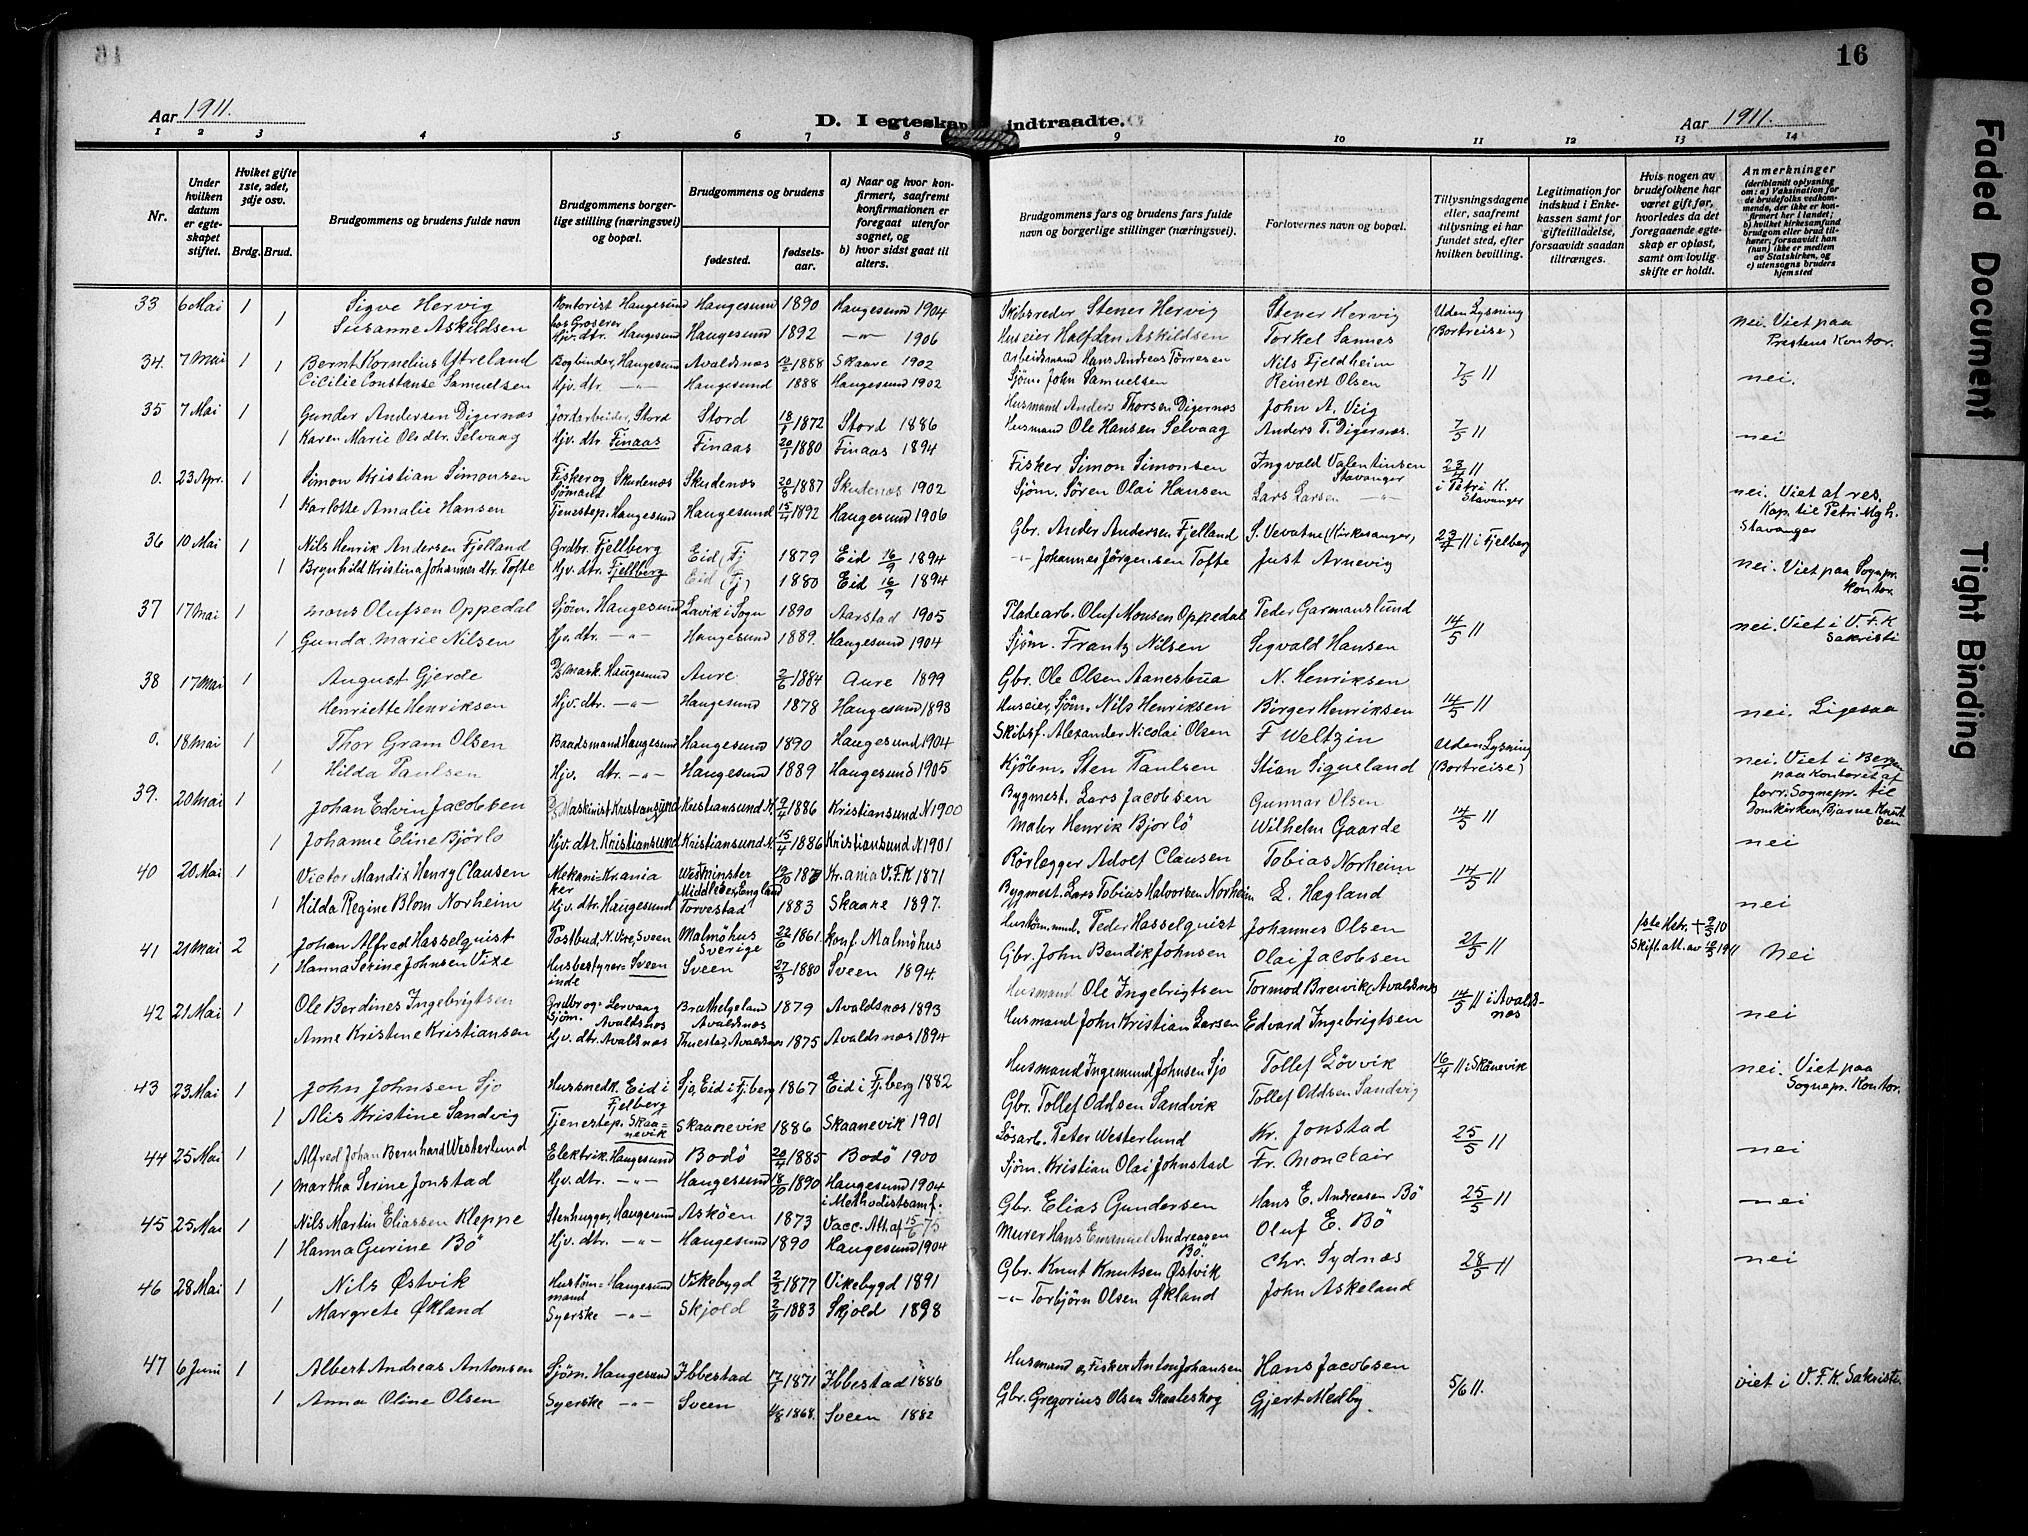 16
Aar 1911. D. I egteskap indtraadte. Aar 1911.
1 2 3 4 5 6 7 8 9 10 11 12 13 14
Nr.
Under hvilken datum er egteskapet stiftet.
Hviket gifte 1ste, 2det, 3dje osv.
Brdg. Brud.
Brudgommens og brudens fulde navn
Brudgommens borgerlige stilling (næringsvei) og bopæl.
Brudgommens og brudens
fødested.
fødselsaar.
a) Naar og hvor konfirmert, saafremt konfirmationen er foregaat utenfor sognet, og
b) hvor sidst gaat til alters.
Brudgommens fars og brudens fars fulde navn og borgerlige stillinger (næringsvei).
Forlovernes navn og bopæl.
Tillysningsdagene eller, saafremt tillysning ei har fundet sted, efter hvilken bevilling.
Legitimation for indskud i Enkekassen samt for giftetilladelse, forsaavidt saadan tiltrænges.
Hvis nogen av brudefolkene har været gift før, hvorledes da det foregaaende egteskap er opløst, samt om lovlig skifte er holdt.
Anmerkninger
(deriblandt oplysning om: a) Vaksination for de brudefolks vedkommende, der ikke er konfirmert her i landet; b) hvilket kirkesamfund brudgom eller brud tilhører, forsaavidt han (hun) ikke er medlem av Statskirken, og c) utensogns bruders hjemsted
33 6 Mai 1 Sigve Hervig Kontorist Haugesund Haugesund 1890 Haugesund 1904 Skibsreder Stener Hervig Stener Hervig Uden Lysning
1 Susanne Askildsen Hjv. dtr. Haugesund Haugesund 1892 -"- 1906 Huseier Halfdan Askildsen Torkel Sannes (Bortreise) nei. Viet paa Prestens Kontor.
34. 7 Mai 1 1 Bernt Kornelius Ytreland Bogbinder, Haugesund Avaldsnes 1888 Skaare 1902 Arbeidsmand Hans Andreas Torresen Nils Fjeldheim 7/5 11
Cicilie Constanse Samuelsen Hjv. dtr. -"- Haugesund 1888 Haugesund 1902 Sjöm. John Samuelsen Reinert Olsen nei.
35 7 Mai 1 Gunder Andersen Digernæs Jordarbeider, Stord Stord 1872 Stord 1886 Husmand Anders Thorsen Digernæs John A. Viig
1 Karen Marie Olsdtr. Selvaag Hjv. dtr. Finaas Finaas 1880 Finaas 1894 Husmand Ole Hansen Selvaag Anders T. Digernæs. 7/5 11 nei
0. 23 Apr. 1 Simon Kristian Simonsen Fisker og Sjömand Skudenæs Skudenæs 20/8 1887 Skudenæs 1902 Fisker Simon Simonsen Ingvald Valentinsen Stavanger 23/4 11 i Petri K. Stavanger
1 Karlotte Amalie Hansen Tjenestep. Haugesund Haugesund 15/4 1892 Haugesund 1906 Sjöm. Sören Olai Hansen Lars Larsen -"- nei. Viet af res. Kap. til Petri Mgh. Stavanger
36 10 Mai 1 Nils Henrik Andersen Fjelland Grdbr. Fjellberg Eid (Fj 1879 Eid 16/9 1894 Gbr. Ander Andersen Fjelland S. Vevatne (Kirkesanger, 23/4 11 i Fjelberg
1 Brynhild Kristina Johannes dtr. Tofte Hjv. dtr. Fjellberg Eid (Fj) 1880 Eid 16/9 1894 -"- Johannes Jörgensen Tofte Just Arnevig nei. Viet paa Sognpr. Kontor
37 17 Mai 1 Mons Olufsen Oppedal Sjöm. Haugesund Lavik i Sogn 1890 Aarstad 1905 Pladearb. Oluf Monsen Oppedal Peder Garmanslund 14/5 11
1 Gunda Marie Nilsen Hjv. dtr. -"- Haugesund 1889. Haugesund 1904 Sjöm. Frantz Nilsen Sigvald Hansen nei. Viet i V. F. K Sakristi
38 17 Mai 1 August Gjerde Haugesund Aure 1884 Aure 1899 Gbr. Ole Olsen Aanesbua N. Henriksen
Henriette Henriksen Hjv. dtr. -"- Haugesund 1878 Haugesund 1893 Huseier, Sjöm. Nils Henriksen Birger Henriksen 14/5 11 nei. Ligesaa
0. 18 Mai 1 Thor Gram Olsen Baadsmand Haugesund Haugesund 1890 Haugesund 1904 Skibsf. Alexander Nicolai Olsen F Weltzin Uden Lysning
1 Hilda Paulsen Hjv. dtr. -"- Haugesund 1889 Haugesund 1905 Kjöbm. Sten Paulsen Stian Sigveland (Bortreise) nei. Viet i Bergen paa Kontoret af forr. Sognepr. til Domkirken, Bjarne Knudtsen
39. 20 Mai 1 Johan Edvin Jacobsen D/S Maskinist Kristiansund Kristiansund N. 1886 Kristiansund N 1900 Bygmest. Lars Jacobsen Gunnar Olsen 14/5 11
1 Johanne Eline Bjørlo Hjv. dtr. Kristiansund Kristiansund N. 15/4 1886 Kristiansund N 1901 Maler Henrik Bjorlö Wilhelm Gaarde nei
40 20 Mai 1 Victor Mandix Henry Clausen Mekaniker Kr.ania Westminster Middlesex, England Kr.ania V.F.K 1871 Rörlegger Adolf Clausen Tobias Norheim 14/5 11
1 Hilda Regine Blom Norheim Hjv. dtr. Haugesund Torvestad 1883 Skaare 1897. Bygmest. Lars Tobias Halvorsen Norheim L. Hagland nei
41 21 Mai 2 Johan Alfred Hasselquist Postbud, N. Vixe, Sveen Malmöhus Sverige 22/6 1861 konf. Malmöhus Peder Hasselquist Johannes Olsen 1ste Hstr. + 9/5 10
1 Hanna Serine Johnsen Vixe Husbestyrerinde Sveen Sveen 1880 Sveen 1894. Gbr. John Bendik Johnsen Olai Jacobsen 21/5 11 Skift. att. av 1911 Nei
42 21 Mai 1 Ole Berdines Ingebrigtsen Grdbr og Sjöm. Lervaag Avaldsnes Bruthelgeland Avaldsnes 1879 Avaldsnes 1893 Husmand Ole Ingebrigtsen Tormod Breivik, Avaldsnes 14/5 11 i Avaldsnæs
Anne Kristine Kristiansen Hjv. dtr. Avaldsnes Thuestad, Avaldsnes 1875 Avaldsnes 1894 Husmand John Kristian Larsen Edvard Ingebrigtsen nei
43 23 Mai 1 John Johnsen Sjo Husmedk. Eid i Fjelberg Sjo, Eid i Fj.berg 1867 Eid i Fj.berg 1882 Husmand Ingemund Johnsen Sjo Tollef Lövvik 16/4 11 i Skånevik nei. Viet paa Sognepr. Kontor.
1 Alis Kristine Sandvig Tjenestep. Skaanevik Skaanevik 1886 Skaanevik 1901 Gbr. Tollef Oddsen Sandvik Tollef Oddsen Sandvig
44 25 Mai 1 Alfred Johan Bernhard Westerlund Elektrik. Haugesund Bodö 20/4 1885 Bodö 1900 Lösarb. Peter Westerlund Kr. Jonstad 25/5 11 nei
1 Martha Serine Jonstad Hjv. dtr. -"- Haugesund 1890 Haugesund 1904 i Methodistsamf. Sjöm. Kristian Olai Johnstad Fr. Monclair
45 25 Mai 1 Nils Martin Eliassen Kleppe Stenhugger, Haugesund Askøen 1873 Vacc. Att. af 15/6 75 Gbr. Elias Gundersen Hans E. Andreasen Bö 25/5 11 nei
1 Hanna Gurine Bö Hjv. dtr. -"- Haugesund 1890 Haugesund 1904 Murer Hans Emanuel Andreasen Bö. Oluf E. Bö
46 28 Mai 1 Nils Østvik Hustömmermand Haugesund Vikebygd 1877 Vikebygd 1891 Gbr. Knut Knutsen Østvik Chr. Sydnæs 28/5 11 nei
1 Margrete Økland Syerske -"- Skjold 1883 Skjold 1898 -"- Torbjörn Olsen Økland John Askeland
47 6 Juni 1 Albert Andreas Antonsen Sjöm. Haugesund Ibbestad 1871 Ibbestad 1886 Husmand o, Fisker Anton Johansen Hans Jacobsen
1 Anna Oline Olsen Syerske -"- Sveen 1868. Sveen 1882 Gbr. Gregorius Olsen Skaaleskog Gjert Medby. 5/6 11. viet i V. F. K. Sakristi.
Faded Document
Tight Binding